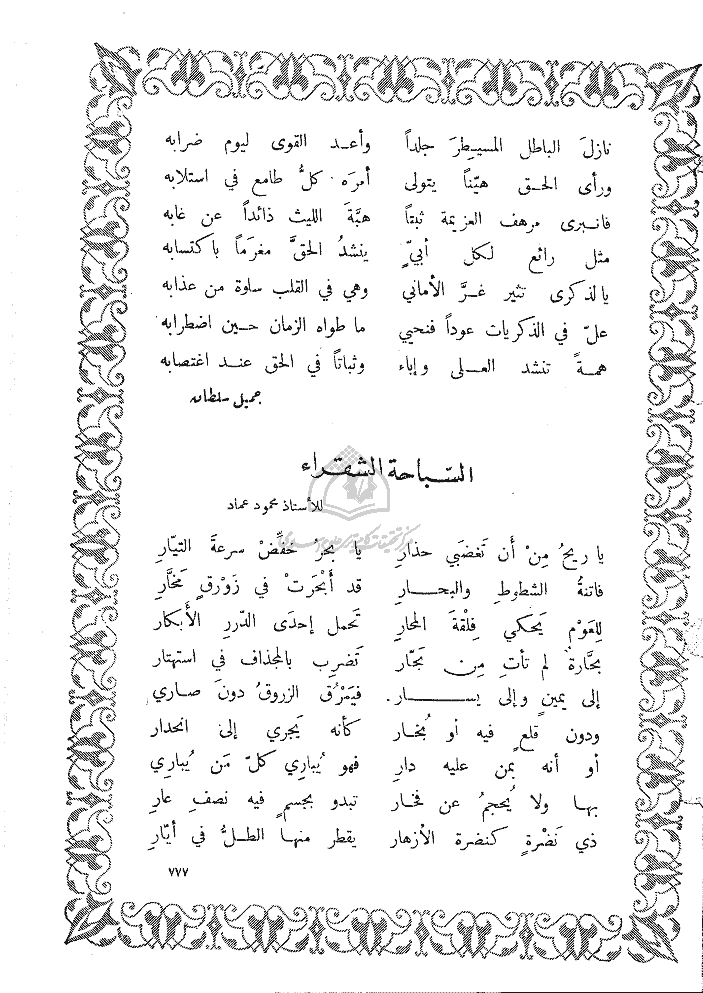 نازلَ الباطل المسيطرَ جلداً وأعد القوى ليوم ضرابه
ورأى الحق هيّناً يتولى أمرَه كلُّ طامع في استلابه
فانبرى مرهف العزيمة ثبتاً هبَّةَ الليث ذائداً عن غابه
مثل رائع لكل أبيٍّ ينشدُ الحقَّ مغرَماً باكتسابه
يالذكرى تثير غرَّ الأماني وهي في القلب سلوة من عذابه
علّ في الذكريات عوداً فنحيي ما طواه الزمان حين اضطرابه
همةً تنشد العلى وإباء وثباتاً في الحق عند اغتصابه
جميل سلطان
السّباحة الشقراء
للأستاذ محمود عماد
يا ريحُ مِنْ أن تَغضَبي حذارِ يا بحرُ خَفِّضْ سرعةَ التيّارِ
فاتنةُ الشطوطِ والبحارِ قد أبْحَرَتْ في زَوْرقٍ مَخّارِ
لِلعَوْمِ يَحكي فِلْقةَ المحارِ تَحمل إحدَى الدّررِ الأبكار
بحّارةٌ لم تأتِ مِن بحّار تَضرِب بالمجذاف في استهتار
إلى يمينٍ وإلى يسار. فيَمْرُق الزروقُ دونَ صاري
ودون قلعٍ فيه أو بُخار كأنه يَجري إلى انحدار
أو أنه بمن عليه دارِ فهو يُباري كلّ مَن يُباري
بها ولا يُحجمُ عن فخار تبدو بجسمٍ فيه نصفِ عارِ
ذي نَضْرةٍ كنضرة الأزهار يقطر منها الطلُّ في أيّارِ
٧٧٧